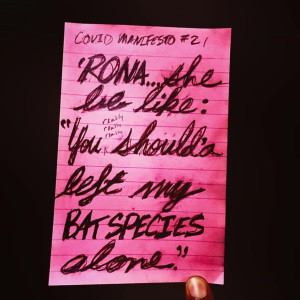 COVID MANIFESTO #21
'RONA...she
be like:
really
really
really
"You should'a
left my
BAT SPECIES
alone."